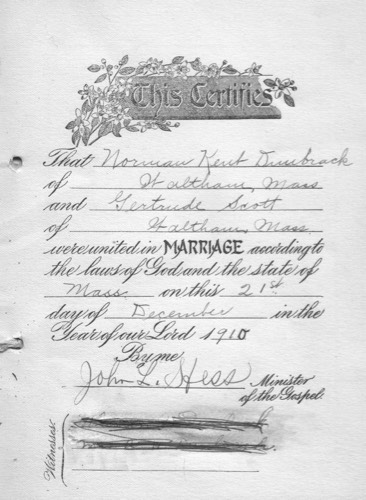 This Certifies
That Norman Kent Dumbrack
of Waltham, Mass
and Gertrude Scott
of Waltham, Mass.
were united in MARRIAGE according to
the laws of God and the state of
Mass on this 21st
day of December in the
Year of our Lord 1910
By me
John L. Hess Minister
of the Gospel.
Witnesses: